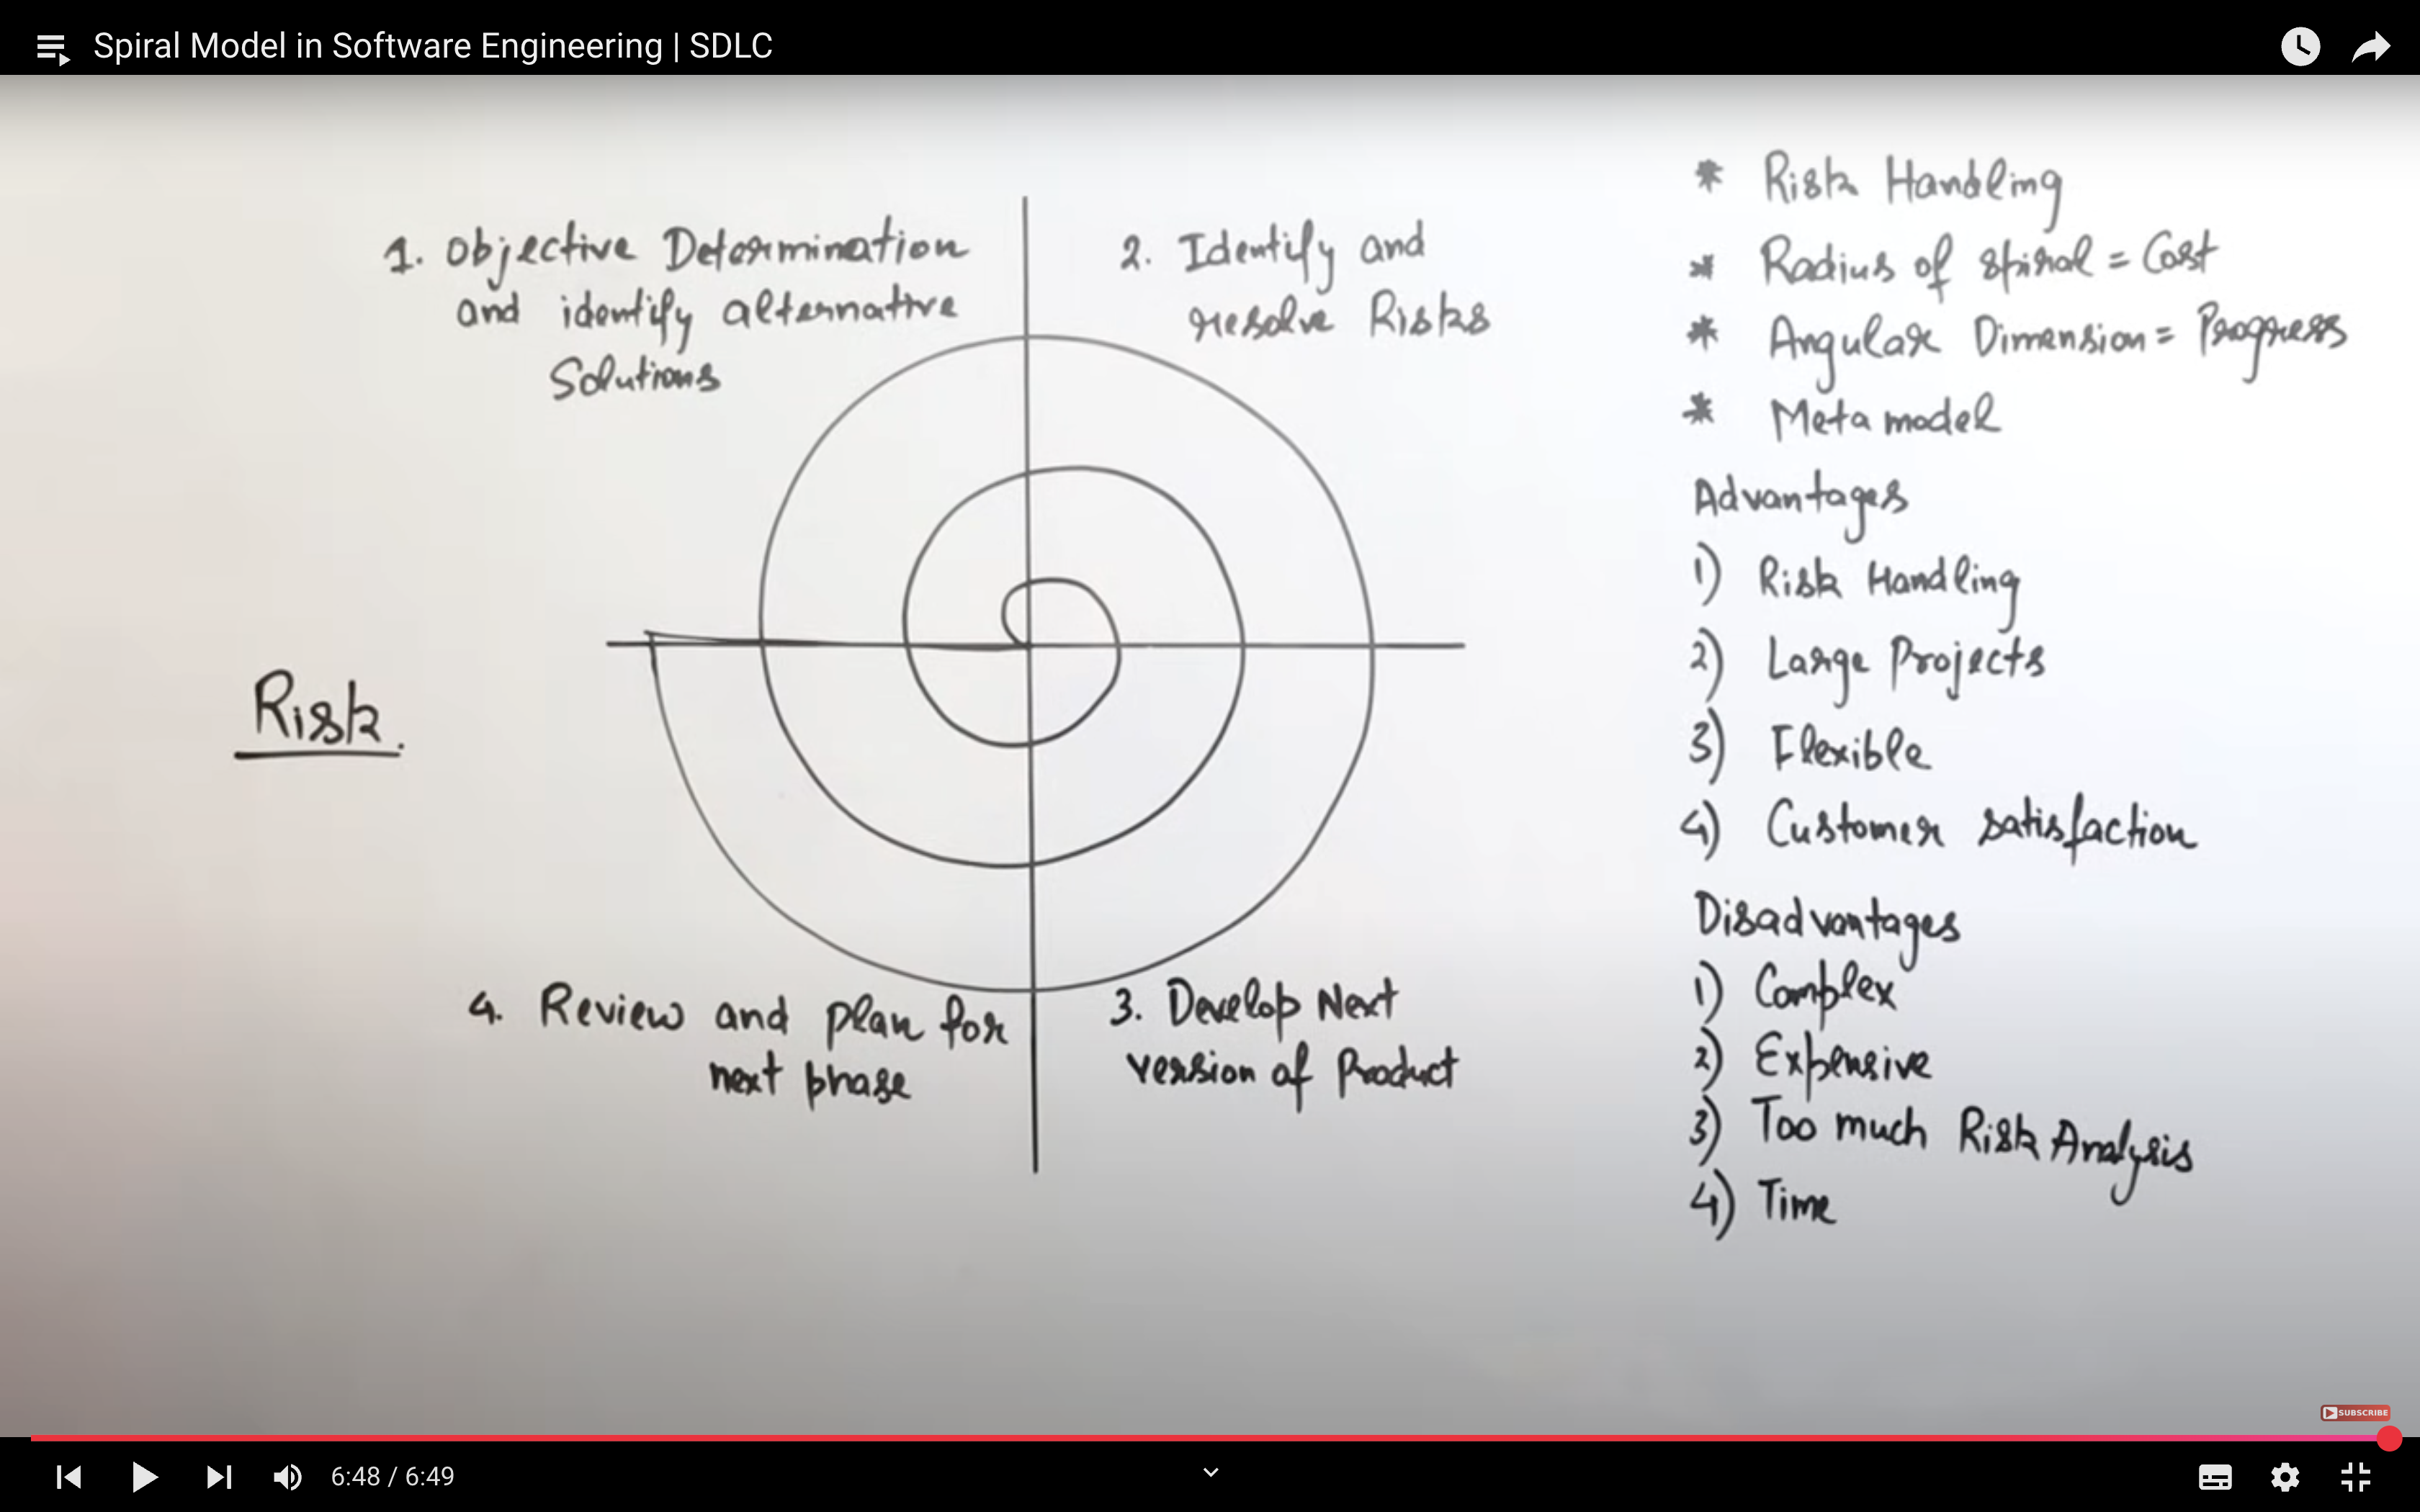 Spiral Model in Software Engineering | SDLC
1. Objective Determination
and identify alternative
Solutions
2. Identify and
resolve Risks
Risk.
4. Review and plan for
next phase
3. Develop Next
version of Product
* Risk Handling
* Radius of spiral = Cost
* Angular Dimension = Progress
* Meta model
Advantages
1) Risk Handling
2) Large Projects
3) Flexible
4) Customer satisfaction
Disadvantages
1) Complex
2) Expensive
3) Too much Risk Analysis
4) Time
SUBSCRIBE
6:48 / 6:49